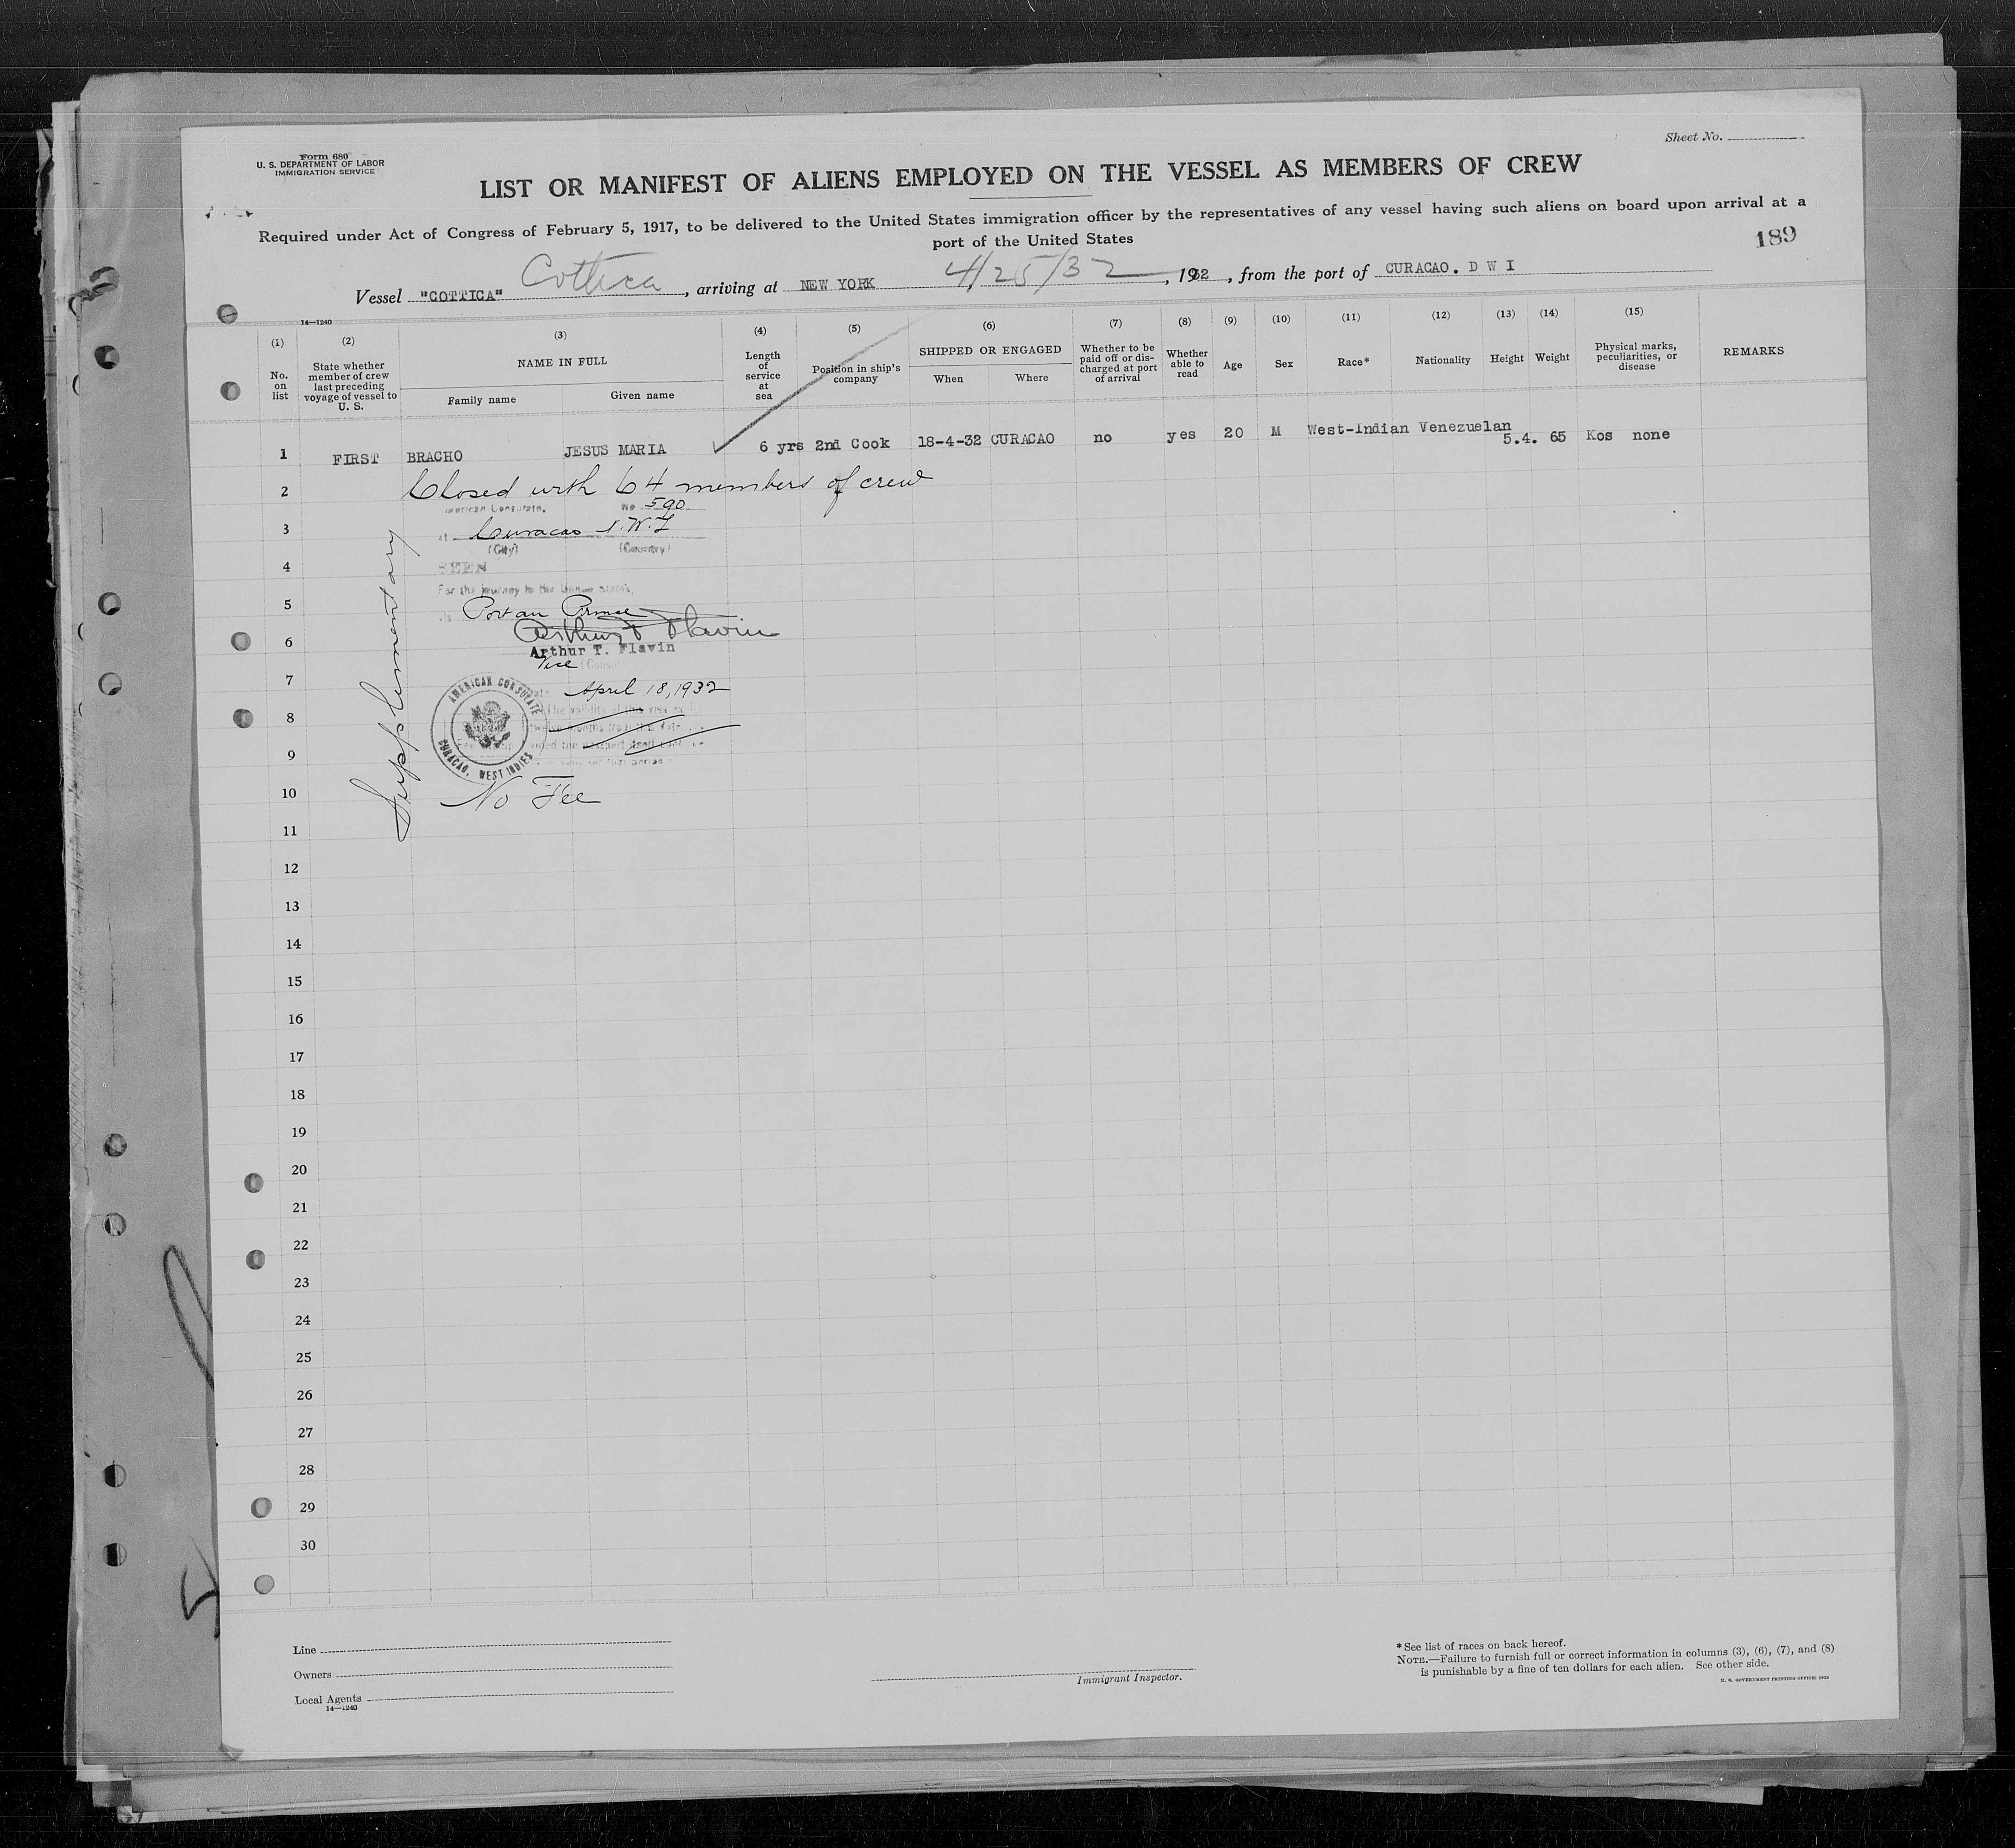 Sheet No.
Form 680
U. S. DEPARTMENT OF LABOR
IMMIGRATION SERVICE
LIST OR MANIFEST OF ALIENS EMPLOYED ON THE VESSEL AS MEMBERS OF CREW
Required under Act of Congress of February 5, 1917, to be delivered to the United States immigration officer by the representatives of any vessel having such aliens on board upon arrival at a
port of the United States
189
Vessel "COTTICA" Cottica, arriving at NEW YORK 4/25/32, 1932, from the port of CURACAO. D W I
14—1240
(1) No. on list
(2) State whether member of crew last preceding voyage of vessel to U. S.
(3) NAME IN FULL
Family name Given name
(4) Length of service at sea
(5) Position in ship's company
(6) SHIPPED OR ENGAGED
When Where
(7) Whether to be paid off or discharged at port of arrival
(8) Whether able to read
(9) Age
(10) Sex
(11) Race*
(12) Nationality
(13) Height
(14) Weight
(15) Physical marks, peculiarities, or disease
REMARKS
1 FIRST BRACHO JESUS MARIA 6 yrs 2nd Cook 18-4-32 CURACAO no yes 20 M West-Indian Venezuelan 5.4. 65 Kos none
2 Closed with 64 members of crew
American Consulate, No 590
3 at Curacao W.I
(City) (Country)
4 SEEN
For the journey to the United States,
5 via Port au Prince
6 Arthur T Flavin
Arthur T. Flavin
Vice (Consul
7 April 18, 1932
AMERICAN CONSULATE
CURACAO, WEST INDIES
8
The validity of this visa
twelve months from this date
9
10 No Fee
Supplementary
11
12
13
14
15
16
17
18
19
20
21
22
23
24
25
26
27
28
29
30
Line
Owners
Local Agents
14—1240
Immigrant Inspector.
*See list of races on back hereof.
NOTE.—Failure to furnish full or correct information in columns (3), (6), (7), and (8)
is punishable by a fine of ten dollars for each alien. See other side.
U. S. GOVERNMENT PRINTING OFFICE